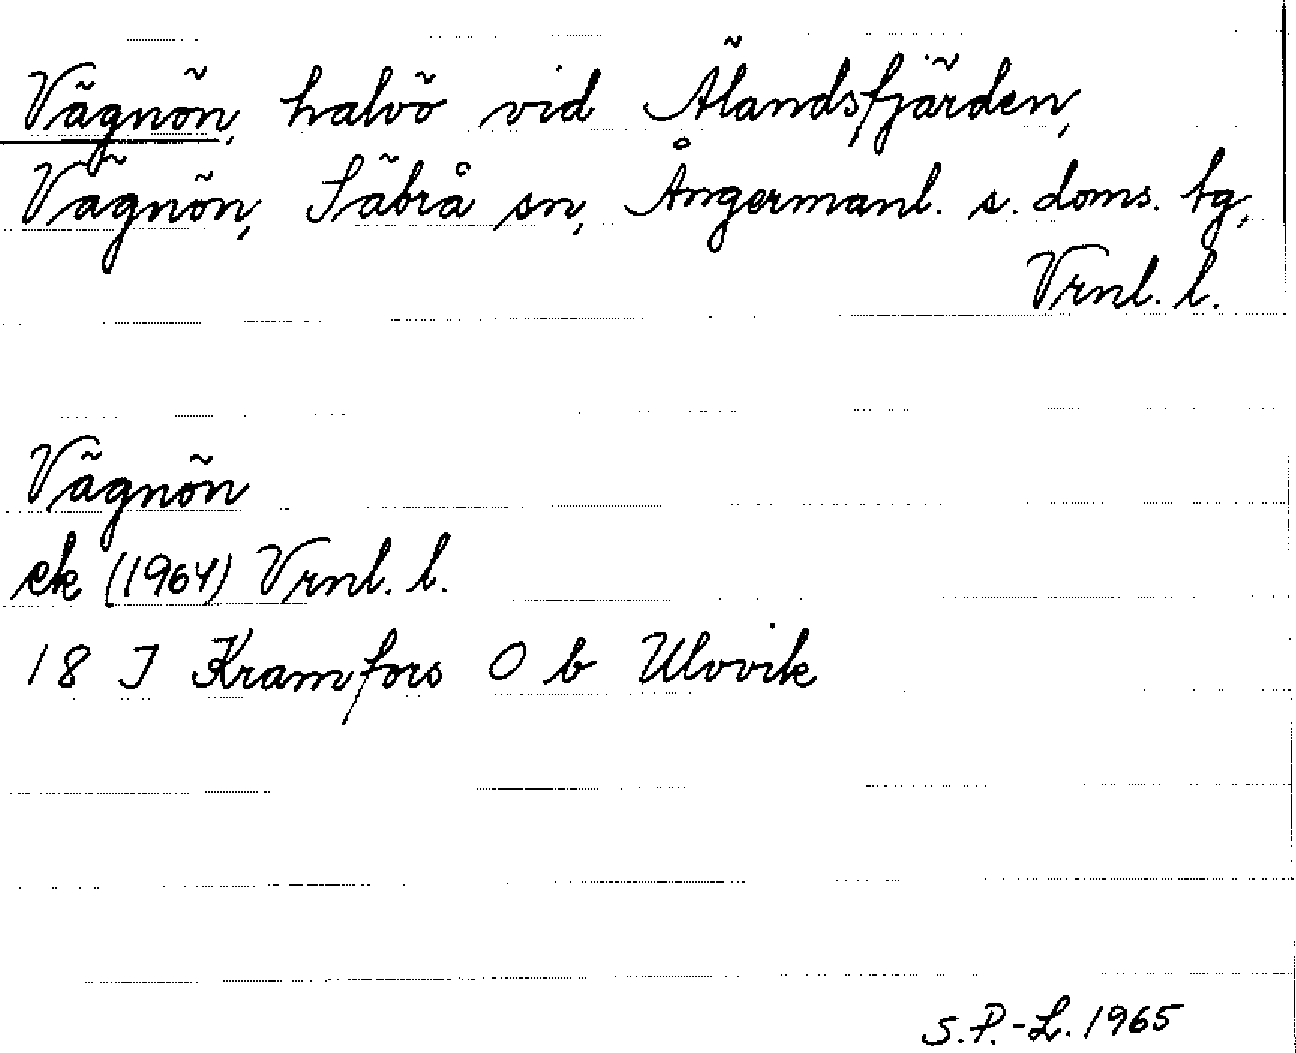 Vägnön, halvö vid Älandsfjärden,
Vägnön, Säbrå sn, Ångermanl. s. doms. tg,
Vrnl. l.
Vägnön
ek (1964) Vrnl. l.
18 J Kramfors O b Ulvvik
S.P.-L. 1965